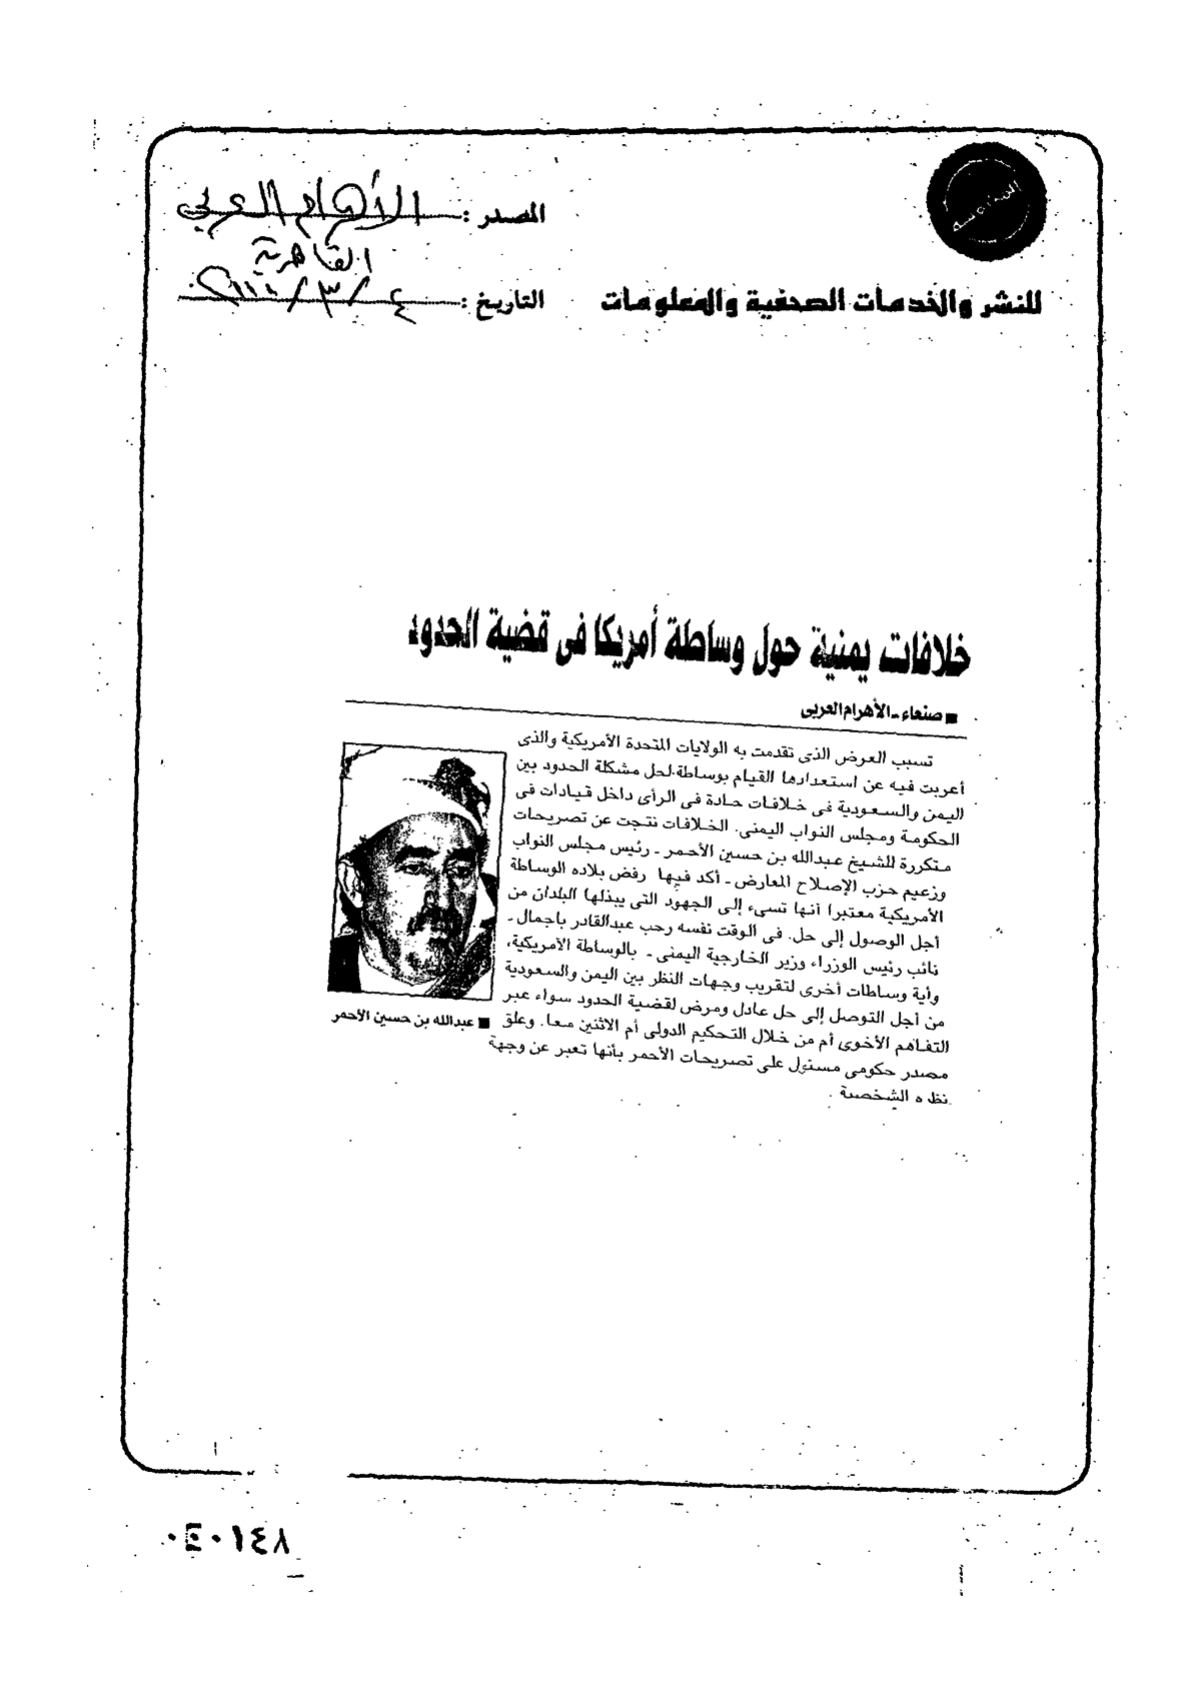 المصدر : الأهرام العربي
القاهرية
للنشر والخدمات الصحفية والمعلومات
التاريخ : ٤ / ٣ /
خلافات يمنية حول وساطة أمريكا فى قضية الحدود
■ صنعاء ـ الأهرام العربى
تسبب العرض الذى تقدمت به الولايات المتحدة الأمريكية والذى
أعربت فيه عن استعدادها القيام بوساطة لحل مشكلة الحدود بين
اليمن والسعودية فى خلافات حادة فى الرأى داخل قيادات فى
الحكومة ومجلس النواب اليمنى. الخلافات نتجت عن تصريحات
متكررة للشيخ عبدالله بن حسين الأحمر ـ رئيس مجلس النواب
وزعيم حزب الإصلاح المعارض ـ أكد فيها رفض بلاده الوساطة
الأمريكية معتبرا أنها تسىء إلى الجهود التى يبذلها البلدان من
أجل الوصول إلى حل. فى الوقت نفسه رحب عبدالقادر باجمال ـ
نائب رئيس الوزراء وزير الخارجية اليمنى ـ بالوساطة الأمريكية،
وأية وساطات أخرى لتقريب وجهات النظر بين اليمن والسعودية
من أجل التوصل إلى حل عادل ومرض لقضية الحدود سواء عبر
التفاهم الأخوى أم من خلال التحكيم الدولى أم الاثنين معا. وعلق
مصدر حكومى مسئول على تصريحات الأحمر بأنها تعبر عن وجهة
نظره الشخصية .
■ عبدالله بن حسين الأحمر
٠E٠١٤٨